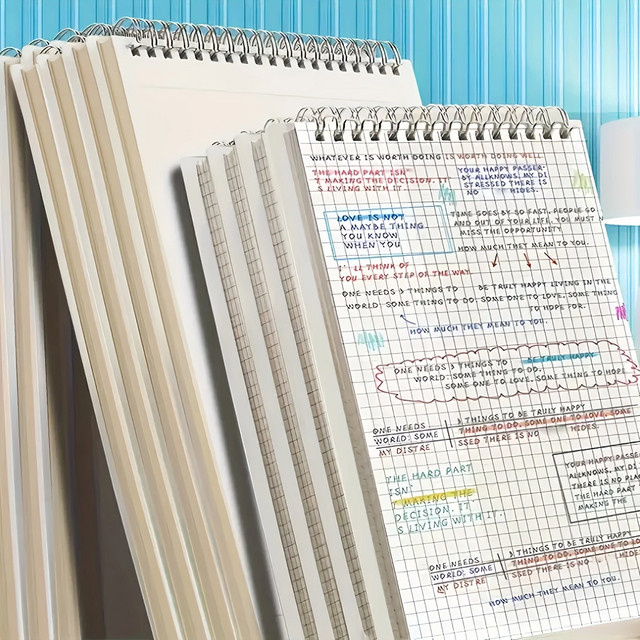 WHATEVER IS WORTH DOING IS WORTH DOING WELL
THE HARD PART ISN'
T MAKING THE DECISION. IT
S LIVING WITH IT.
YOUR HAPPY PASSER-
BY ALLKNOWS, MY DI
STRESSED THERE IS
NO HIDES.
LOVE IS NOT
A MAYBE THING
YOU KNOW
WHEN YOU
TIME GOES BY SO FAST, PEOPLE GO
AND OUT OF YOUR LIFE. YOU MUST
MISS THE OPPORTUNITY
HOW MUCH THEY MEAN TO YOU.
I' LL THINK OF
YOU EVERY STEP OF THE WAY
ONE NEEDS 3 THINGS TO BE TRULY HAPPY LIVING IN THE
WORLD: SOME THING TO DO. SOME ONE TO LOVE, SOME THING
TO HOPE FOR.
HOW MUCH THEY MEAN TO YOU.
ONE NEEDS 3 THINGS TO BE TRULY HAPPY
WORLD: SOME THING TO DO.
SOME ONE TO LOVE. SOME THING TO HOPE
ONE NEEDS 3 THINGS TO BE TRULY HAPPY
WORLD: SOME THING TO DO. SOME ONE TO LOVE, SOME
MY DISTRE SSED THERE IS NO HIDES.
THE HARD PART
ISN'
T MAKING THE
DECISION. IT
S LIVING WITH IT.
YOUR HAPPY PASSE
ALLKNOWS, MY DI
THERE IS NO PLA
THE HARD PART
MAKING THE
ONE NEEDS 3 THINGS TO BE TRULY HAPPY
WORLD: SOME THING TO DO. SOME ONE TO LO
MY DISTRE SSED THERE IS NO HIDE
HOW MUCH THEY MEAN TO YOU.